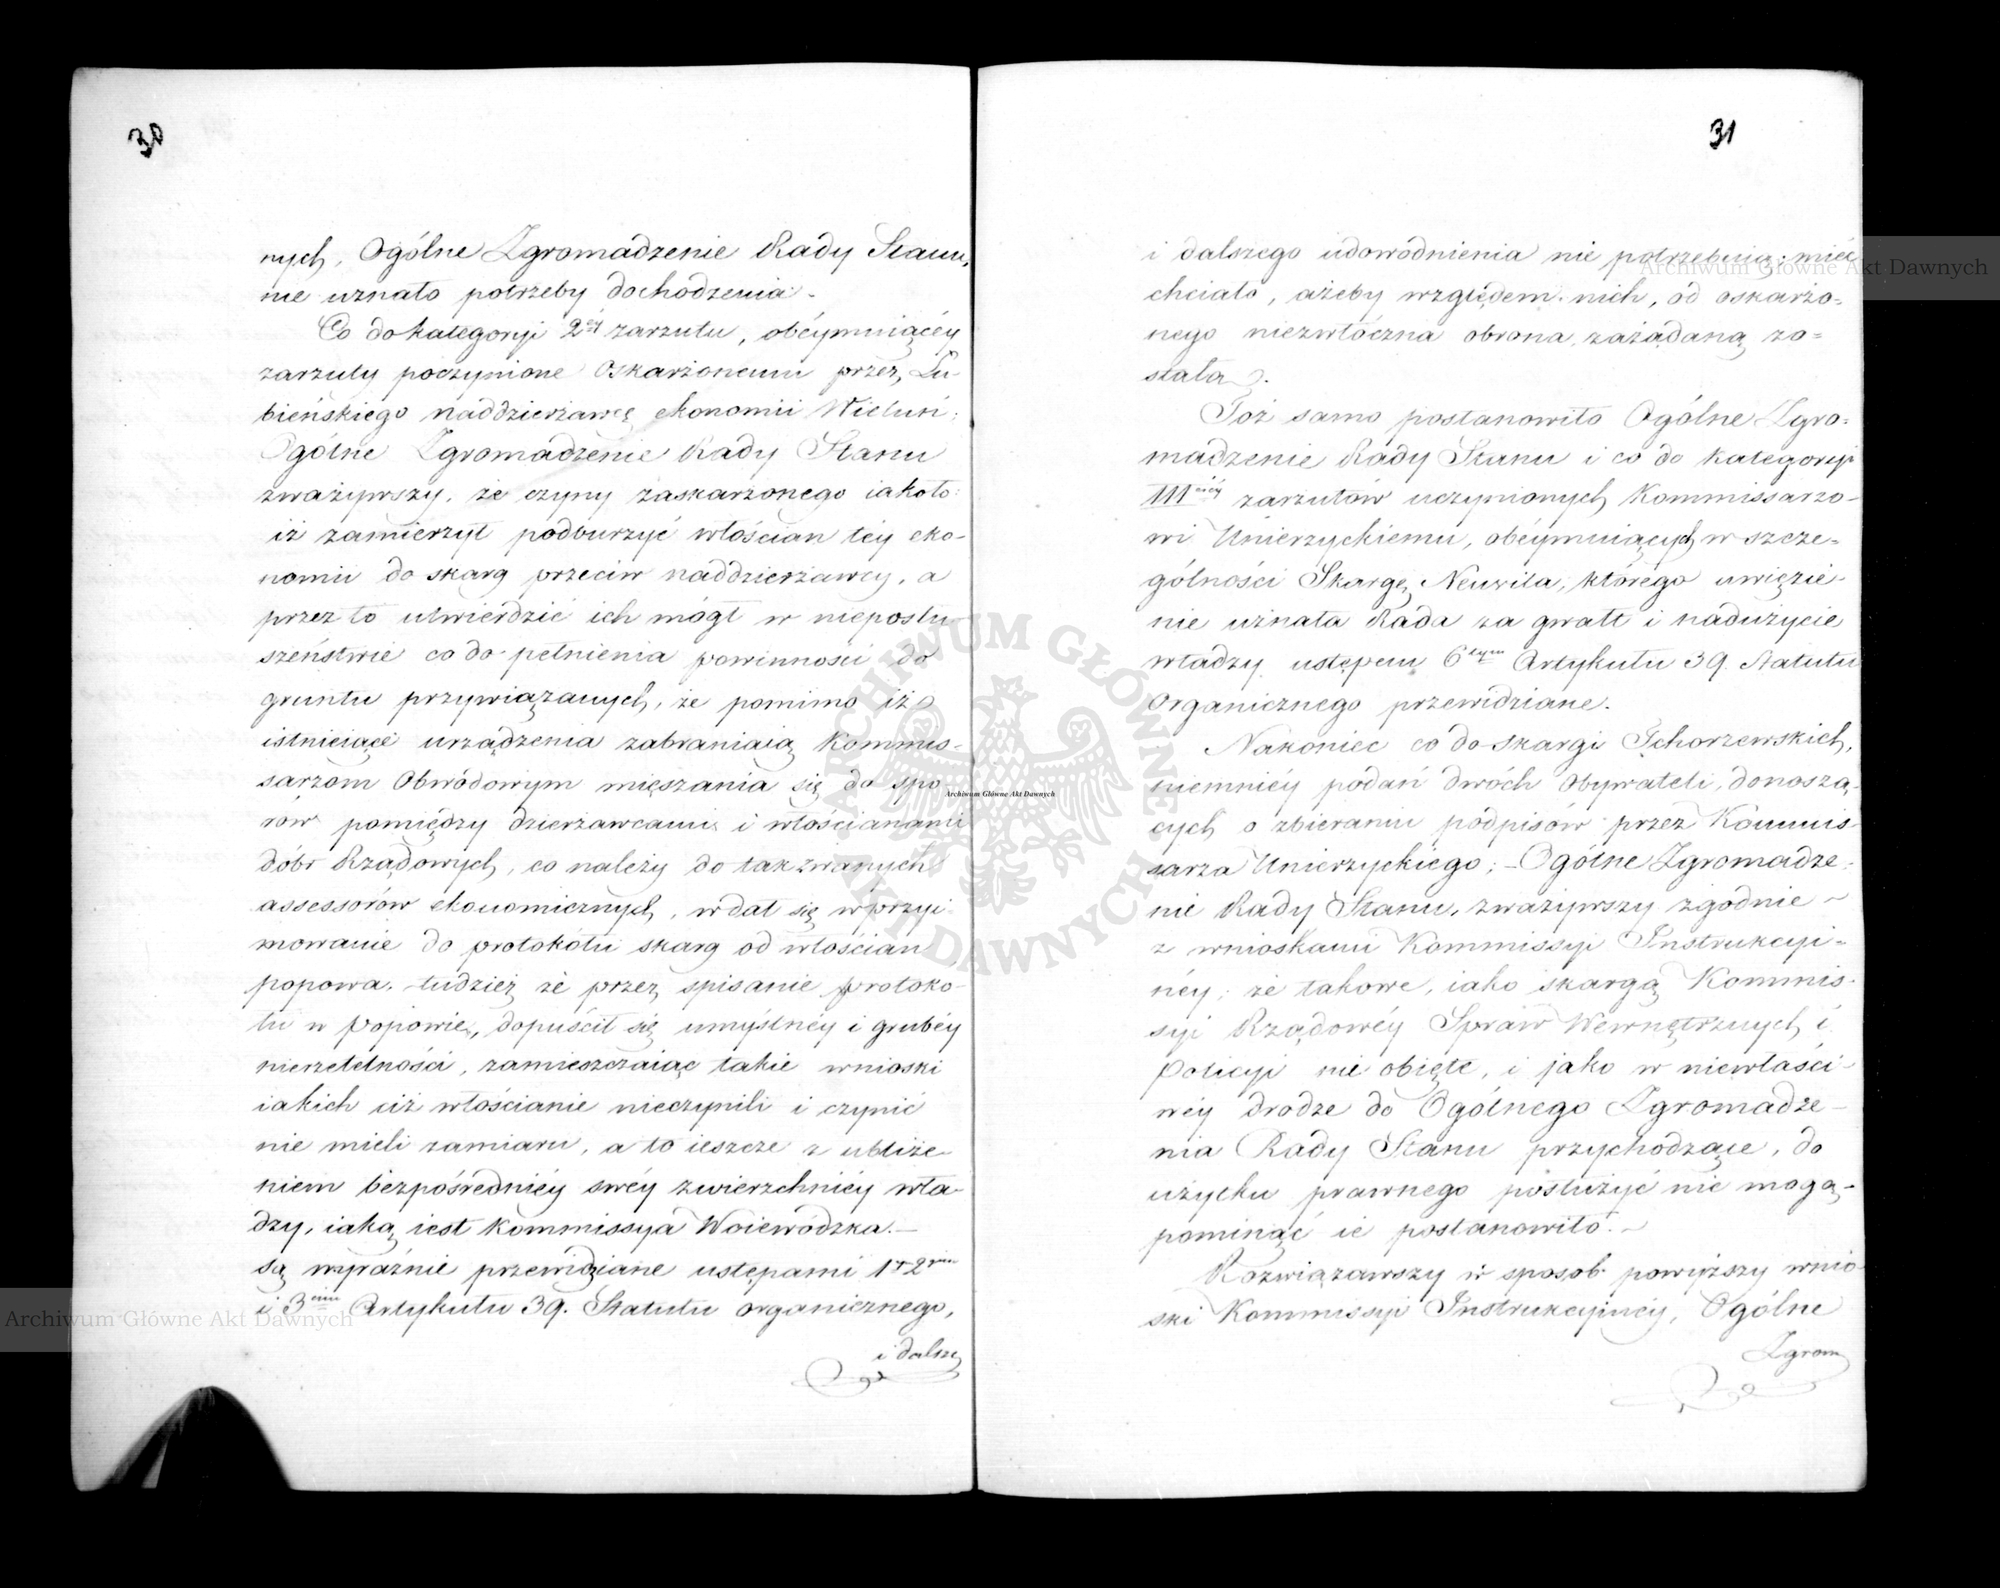 30
nych, Ogólne Zgromadzenie Rady Stanu,
nie uznało potrzeby dochodzenia.
Co do kategoryi 2éy zarzutu, obéymuiącéy
zarzuty poczynione oskarżonemu przez Łu-
bieńskiego naddzierżawcę ekonomii Wieluń;
Ogólne Zgromadzenie Rady Stanu
zważywszy, że czyny zaskarżonego iakoto:
iż zamierzył podburzyć włościan téy eko-
nomii do skarg przeciw naddzierżawcy, a
przez to utwierdzić ich mógł w nieposłu-
szeństwie co do pełnienia powinności do
gruntu przywiązanych, że pomimo iż
istnieiące urządzenia zabraniaią Kommis-
sarzom Obwodowym mięszania się do spo-
rów pomiędzy dzierżawcami i włościanami
dóbr Rządowych, co należy do tak zwanych
assessorów ekonomicznych, wdał się w przyi-
mowanie do protokółu skarg od włościan
popowa, tudzież że przez spisanie protoko-
łu w Popowie, dopuścił się umyślnéy i grubéy
nierzetelności, zamieszczaiąc takie wnioski
iakich ciż włościanie nieczynili i czynić
nie mieli zamiaru, a to ieszcze z ubliże-
niem bezpośrednićy swéy zwierzchniéy wła-
dzy, iaką iest Kommissya Woiewódzka.—
są wyraźnie przewidziane ustępami 1. 2gim
i 3cim Artykułu 39. Statutu organicznego,
i dalsze
31
i dalszego udowodnienia nie potrzebuią; mieć
chciało, ażeby względem nich, od oskarżo-
nego niezwłóczna obrona zażądaną zo-
stała.
Toż samo postanowiło Ogólne Zgro-
madzenie Rady Stanu i co do kategoryi
IIIciéy zarzutów uczynionych Kommissarzo-
wi Unierzyckiemu, obéymuiących w szcze-
gólności Skargę Neuvila, którego uwięzie-
nie uznała Rada za gwałt i nadużycie
władzy ustępem 6tym Artykułu 39. Statutu
Organicznego przewidziane.
Nakoniec co do skargi Tchorzewskich,
niemniéy podań dwóch Obywateli, donoszą-
cych o zbieraniu podpisów przez Kommis-
sarza Unierzyckiego; – Ogólne Zgromadze-
nie Rady Stanu, zważywszy zgodnie
z wnioskami Kommissyi Instrukcyi-
néy; że takowe, iako skargą Kommis-
syi Rządowéy Spraw Wewnętrznych i
Policyi nie obięte, i jako w niewłaści-
wéy drodze do Ogólnego Zgromadze-
nia Rady Stanu przychodzące, do
użytku prawnego posłużyć nie mogą,
pominąć ie postanowiło.
Rozwiązawszy w sposób powyższy wnio-
ski Kommissyi Instrukcyinéy, Ogólne
Zgrom
Archiwum Główne Akt Dawnych
Archiwum Główne Akt Dawnych
Archiwum Główne Akt Dawnych
ARCHIWUM GŁÓWNE AKT DAWNYCH